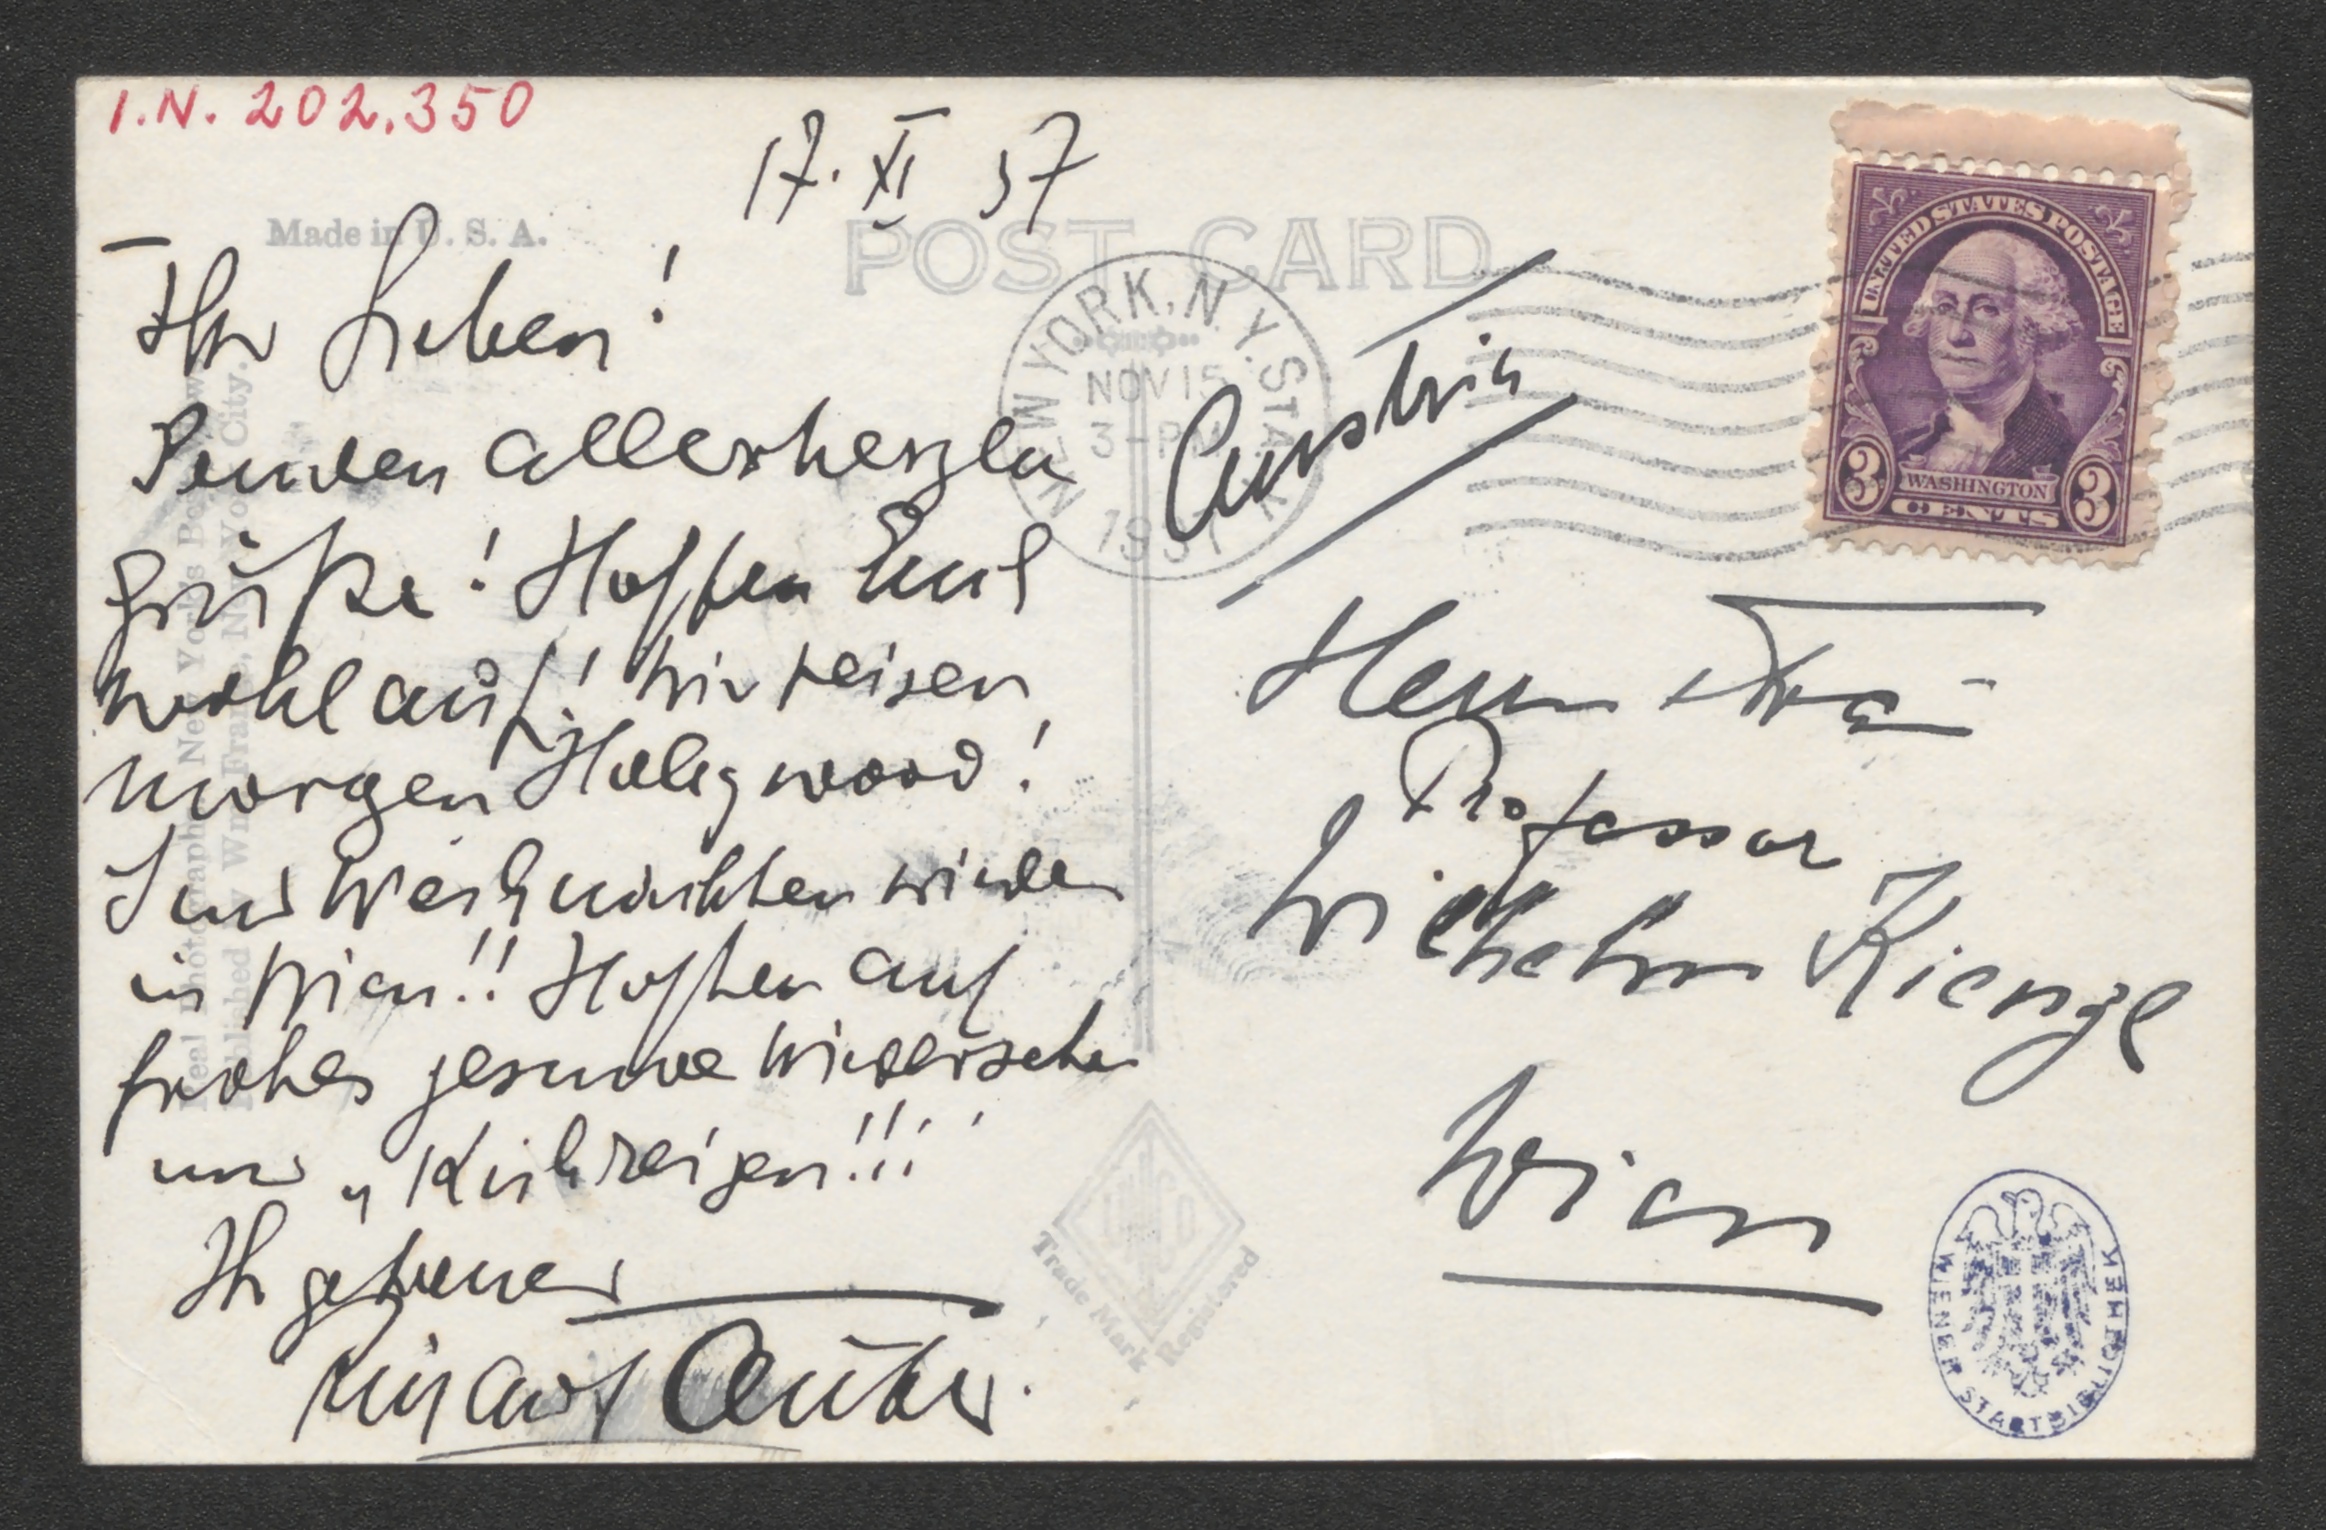 I.N. 202.350
17. XI 37
Made in U.S.A.
POST CARD
NEW YORK, N.Y. STA.
NOV 15
3 - PM
1937
UNITED STATES POSTAGE
3 WASHINGTON 3
CENTS
Austria
Ihr Lieben!
Senden allerherzln
Grüße! Hoffen Euch
wohlauf! Wir reisen
morgen Hollywood!
Sind Weihnachten wieder
in Wien!! Hoffen auf
frohes gesundes Wiedersehen
und „Kuhreigen!!!"
Ihr getreuer
Herrn
Professor
Wilhelm Kienzl
Wien
Real Photographs New York's
Published by Wm Frange, New York City.
Trade Mark Registered
WIENER STADTBIBLIOTHEK